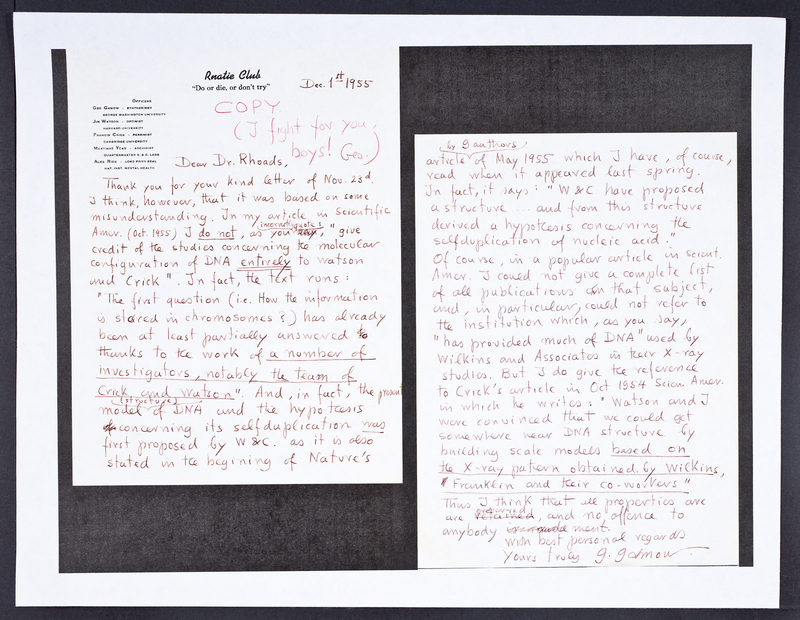 Rnatie Club
"Do or die, or don't try"
Dec. 1st 1955
Officers
Geo Gamow - synthesiser
George Washington University
Jim Watson - optimist
Harvard University
Francis Crick - pessimist
Cambridge University
Martynas Ycas - archivist
Quartermaster R. & D. Labs
Alex Rich - lord privy seal
Nat. Inst. Mental Health
COPY
(I fight for you,
boys! Geo.)
Dear Dr. Rhoads,
Thank you for your kind letter of Nov. 23d.
I think, however, that it was based on some
misunderstanding. In my article in Scientific
Amer. (Oct. 1955) I do not, as you say, "give
credit of the studies concerning the molecular
configuration of DNA entirely to Watson
and Crick". In fact, the text runs:
"The first question (i.e. How the information
is stored in chromosomes?) has already
been at least partially answered
thanks to the work of a number of
investigators, notably the team of
Crick and Watson". And, in fact, the present
(structure)
model of DNA and the hypotesis
concerning its selfduplication was
first proposed by W&C. as it is also
stated in the begining of Nature's
by 9 authors
article of May 1955 which I have, of course,
read when it appeared last spring.
In fact, it says: "W&C have proposed
a structure ... and from this structure
derived a hypotesis concerning the
selfduplication of nucleic acid."
Of course, in a popular article in Scient.
Amer. I could not give a complete list
of all publications on that subject,
and, in particular, could not refer to
the institution which, as you say,
"has provided much of DNA" used by
Wilkins and Associates in their X-ray
studies. But I do give the reference
to Crick's article in Oct 1954 Scien. Amer.
in which he writes: "Watson and I
were convinced that we could get
somewhere near DNA structure by
building scale models based on
the X-ray pattern obtained by Wilkins,
Franklin and their co-workers"
Thus I think that all properties are
are observed, and no offence to
anybody ment.
with best personal regards
Yours truly G. Gamow